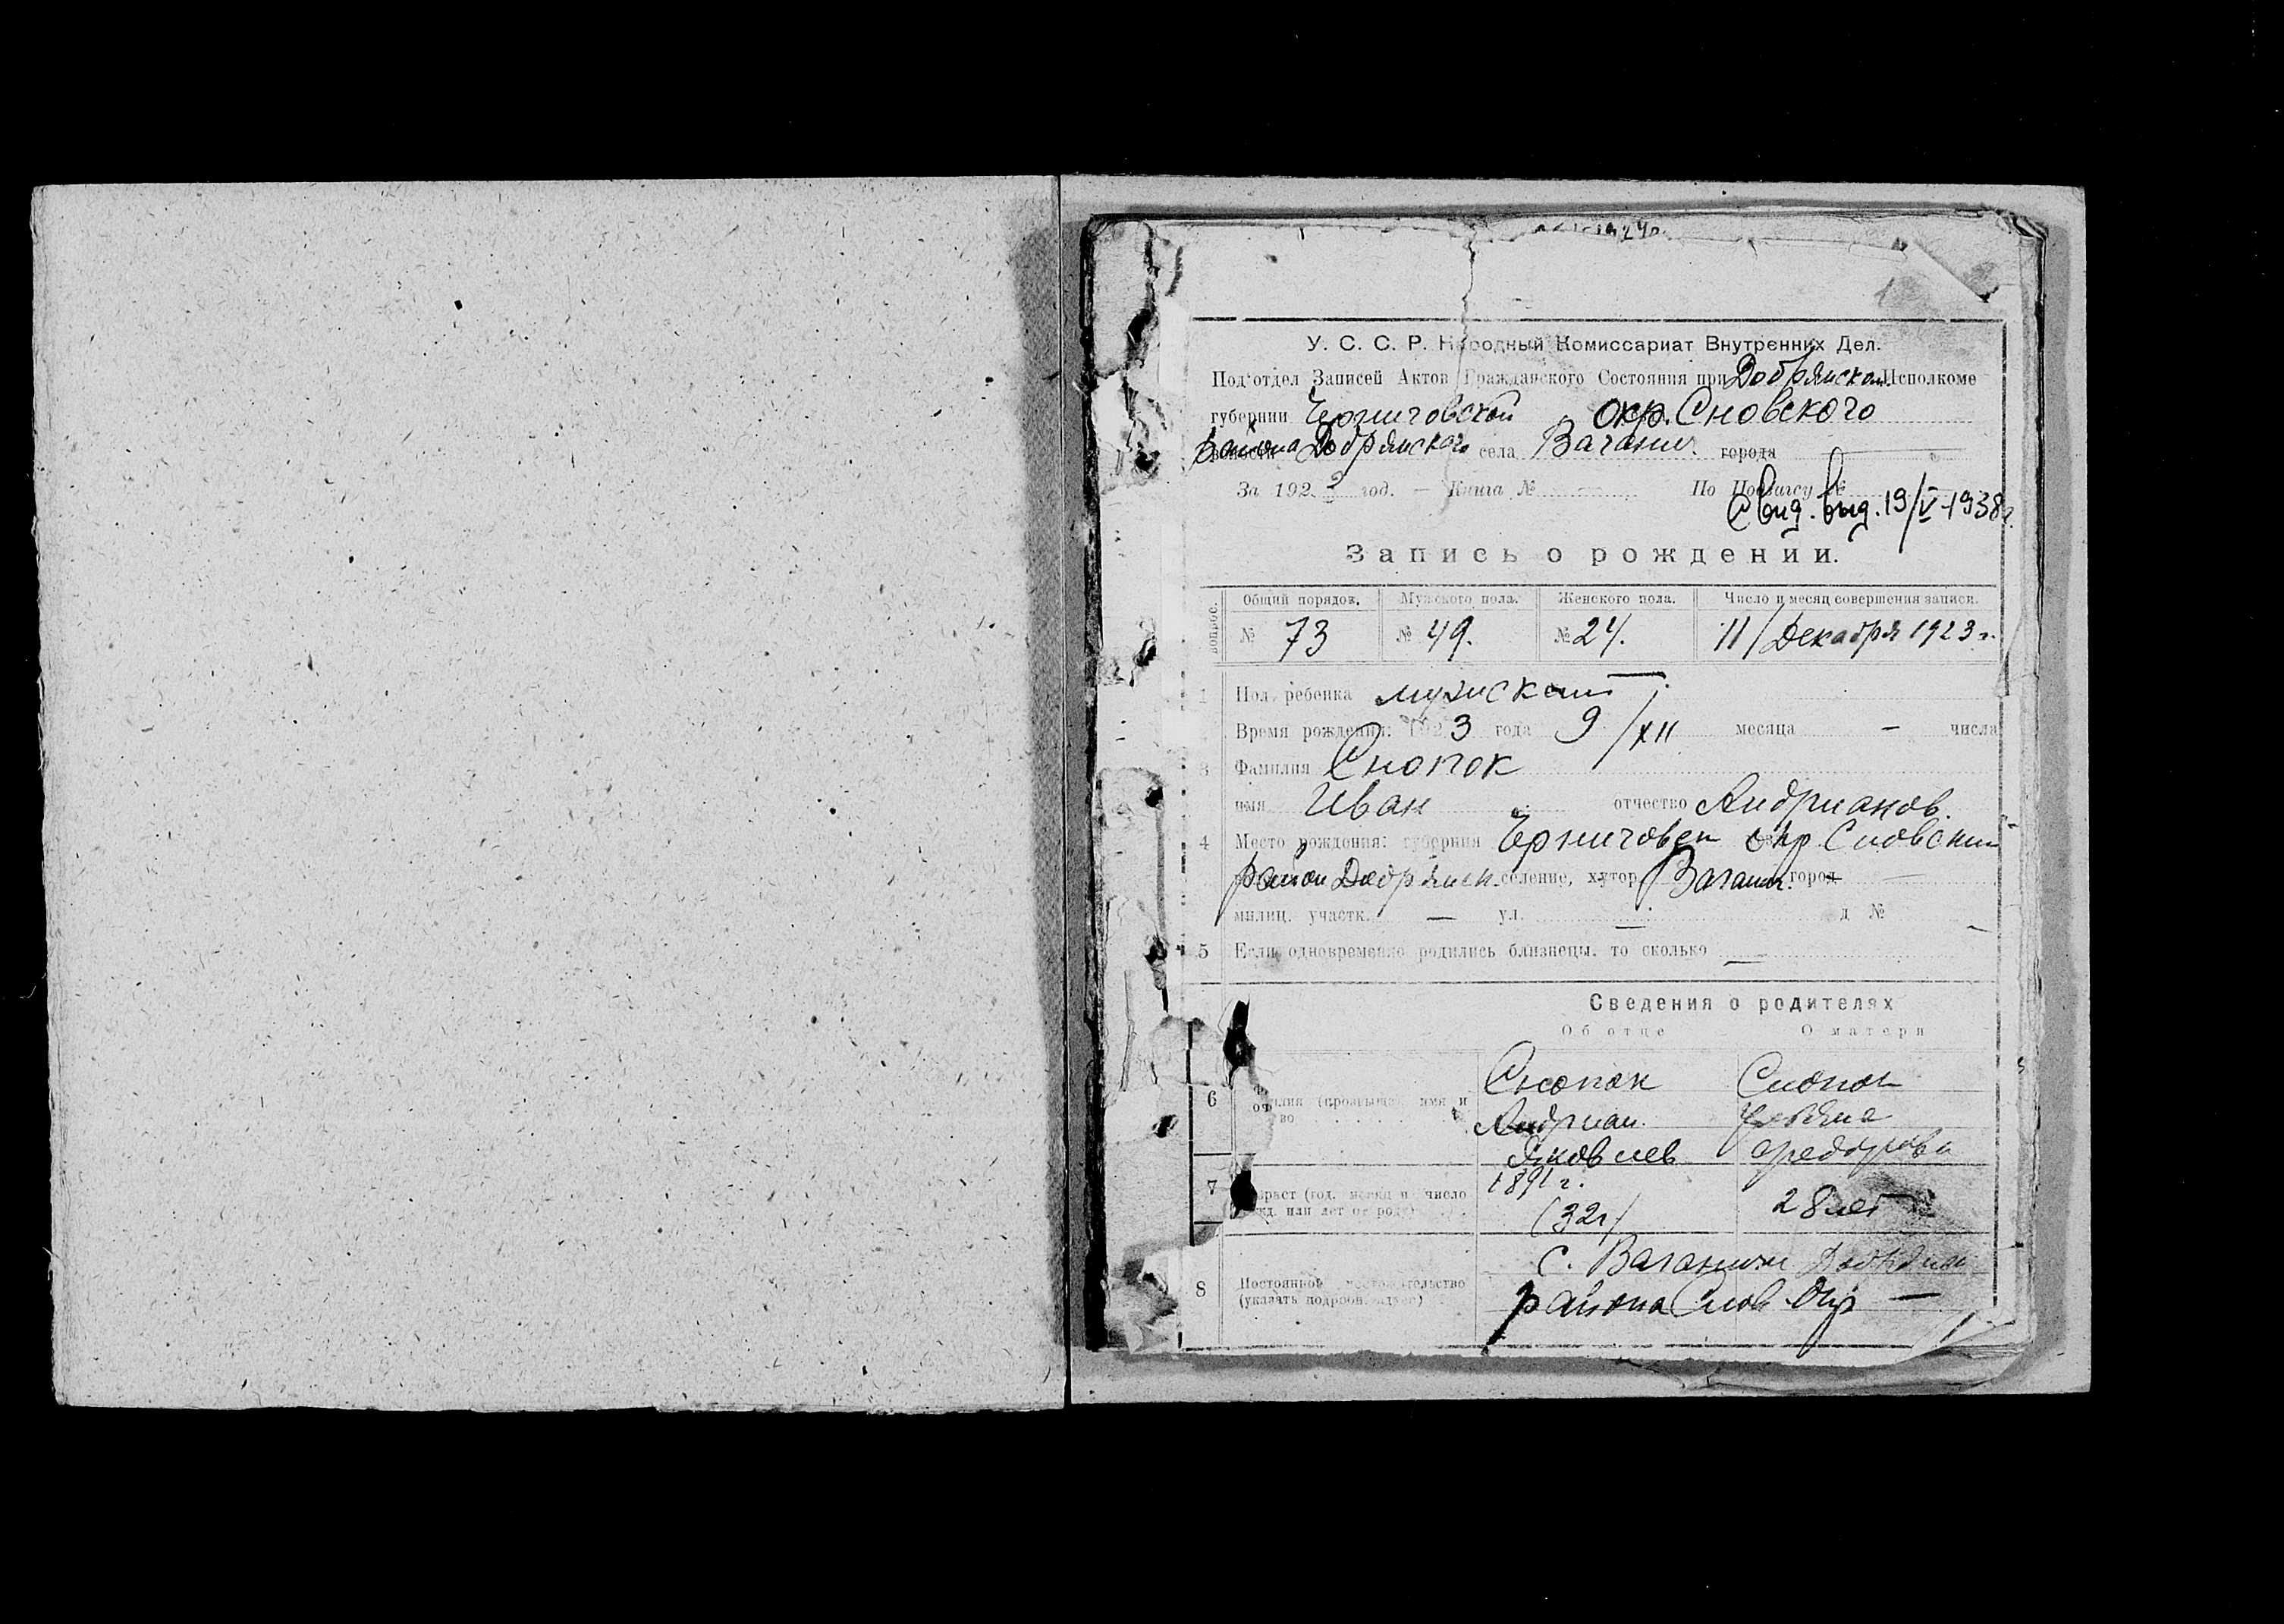 1924
У. С. С. Р. Народный Комиссариат Внутренних Дел.
Под'отдел Записей Актов Гражданского Состояния при Добрянском Исполкоме
губернии Черниговской окр. Сновского
района Добрянского села Ваганич. города —
За 192 2 год. — Книга № — По Поблагсу №
Свид. выд. 19/V-1938 г.
Запись о рождении.
вопрос. Общий порядок. Мужского пола. Женского пола. Число и месяц совершения записи.
№ 73 № 49. № 24. 11/Декабря 1923 г.
1 Пол ребенка мужской
Время рождения: 1923 года 9/XII месяца — числа
3 Фамилия Снопок
имя Иван отчество Андрианов.
4 Место рождения: губерния Черниговск окр. Сновский
район Добрянск. селение, хутор Ваганич. город —
милиц. участк. — ул. — д №
5 Если одновременно родились близнецы, то сколько —
Сведения о родителях
Об отце О матери
6 Снопок Снопок
Андриан
Яковлев Федорова
7 1891 г.
(32 г) 28 лет
число
8 с. Ваганичи Добрянск
Постоянное
(указать подробн. адрес) района Снов. Окр —